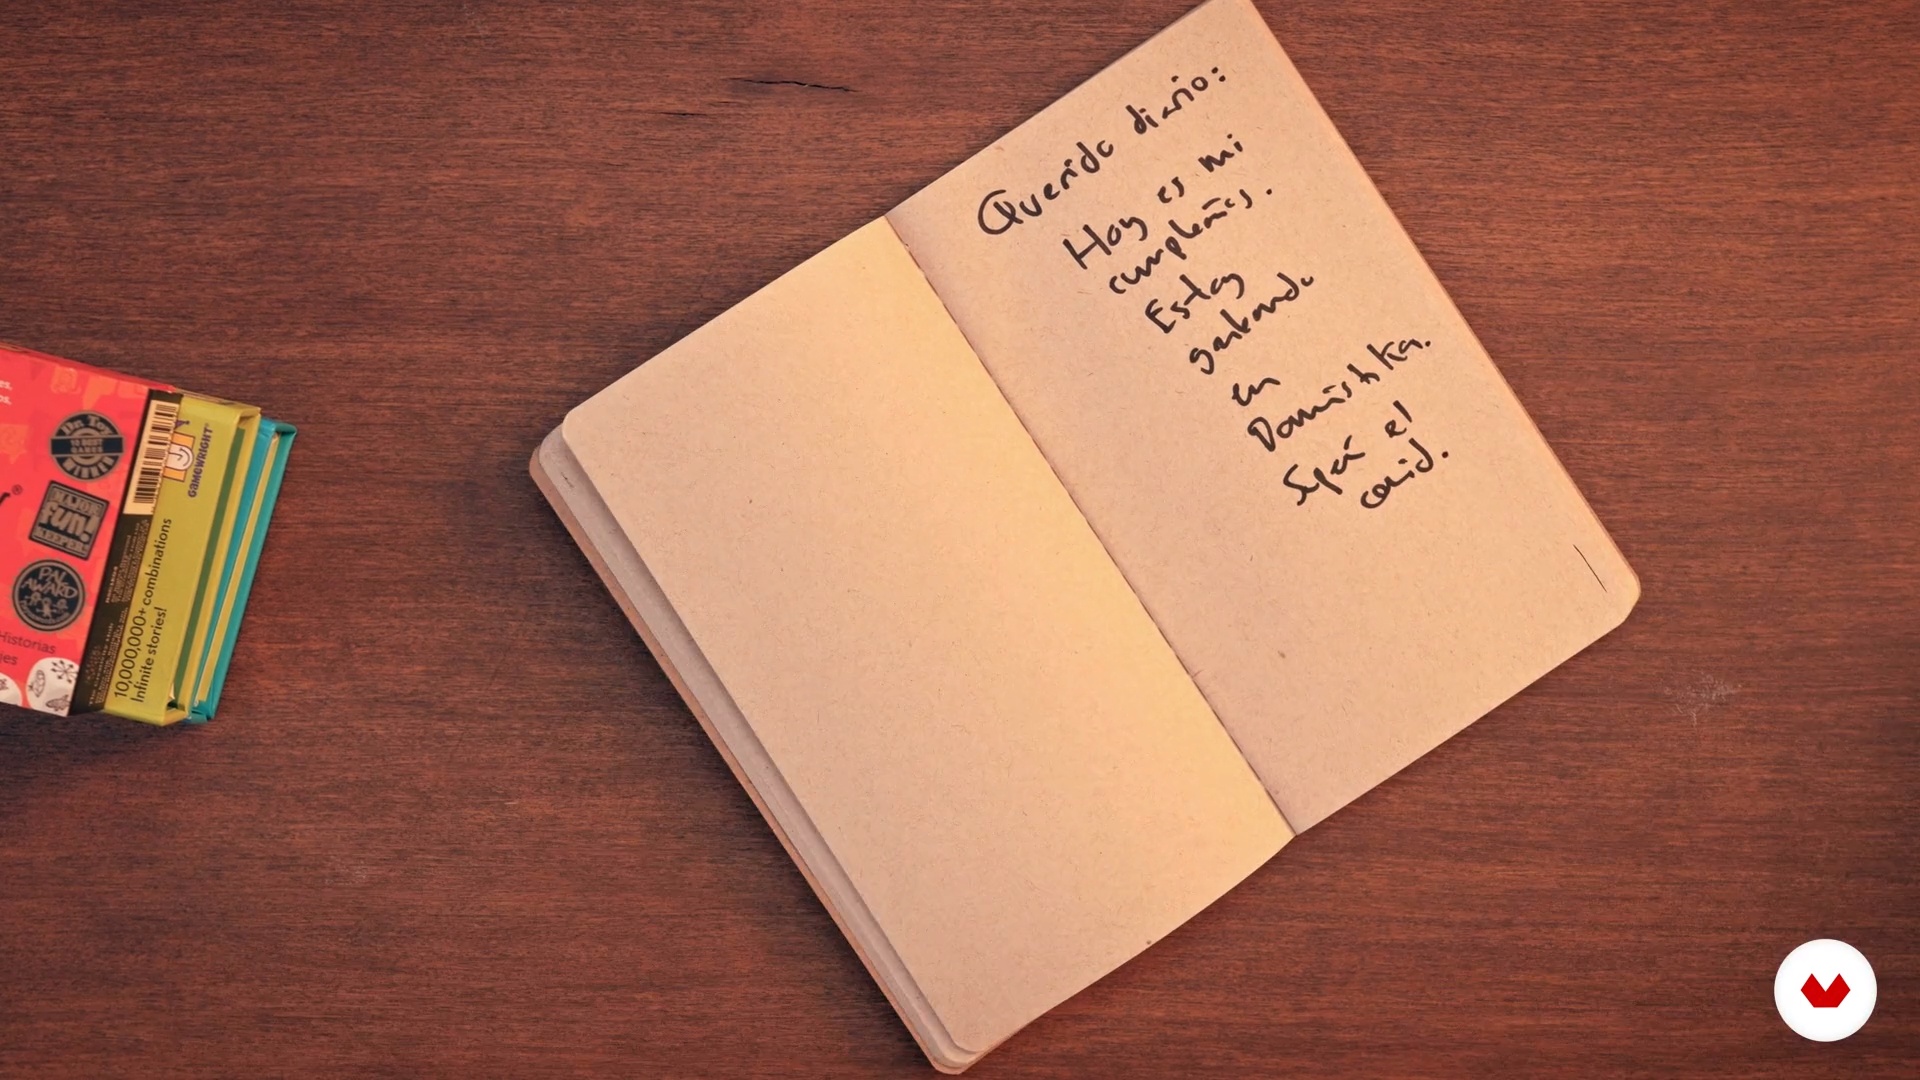 Querido diario:
Hoy es mi
cumpleaños.
Estoy
grabando
en
Domistika.
Superé el
covid.
Dr. Toy
10 BEST
GAMES
WINNER
MAJOR
fun!
KEEPER
PAL
AWARD
Historias
GAMEWRIGHT
10,000,000+ combinations
Infinite stories!